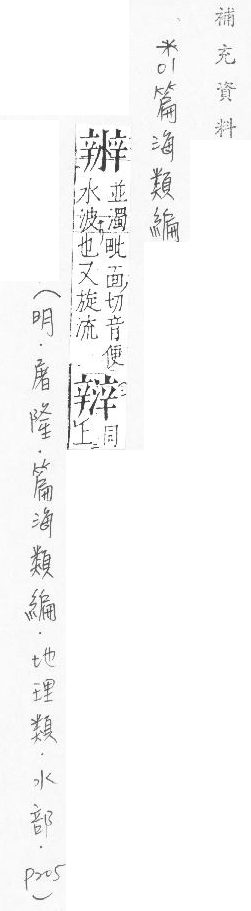 補充資料
*01篇海類編
並濁毗面切音便
水波也又旋流
同
上
(明．屠隆．篇海類編．地理類．水部．P205)